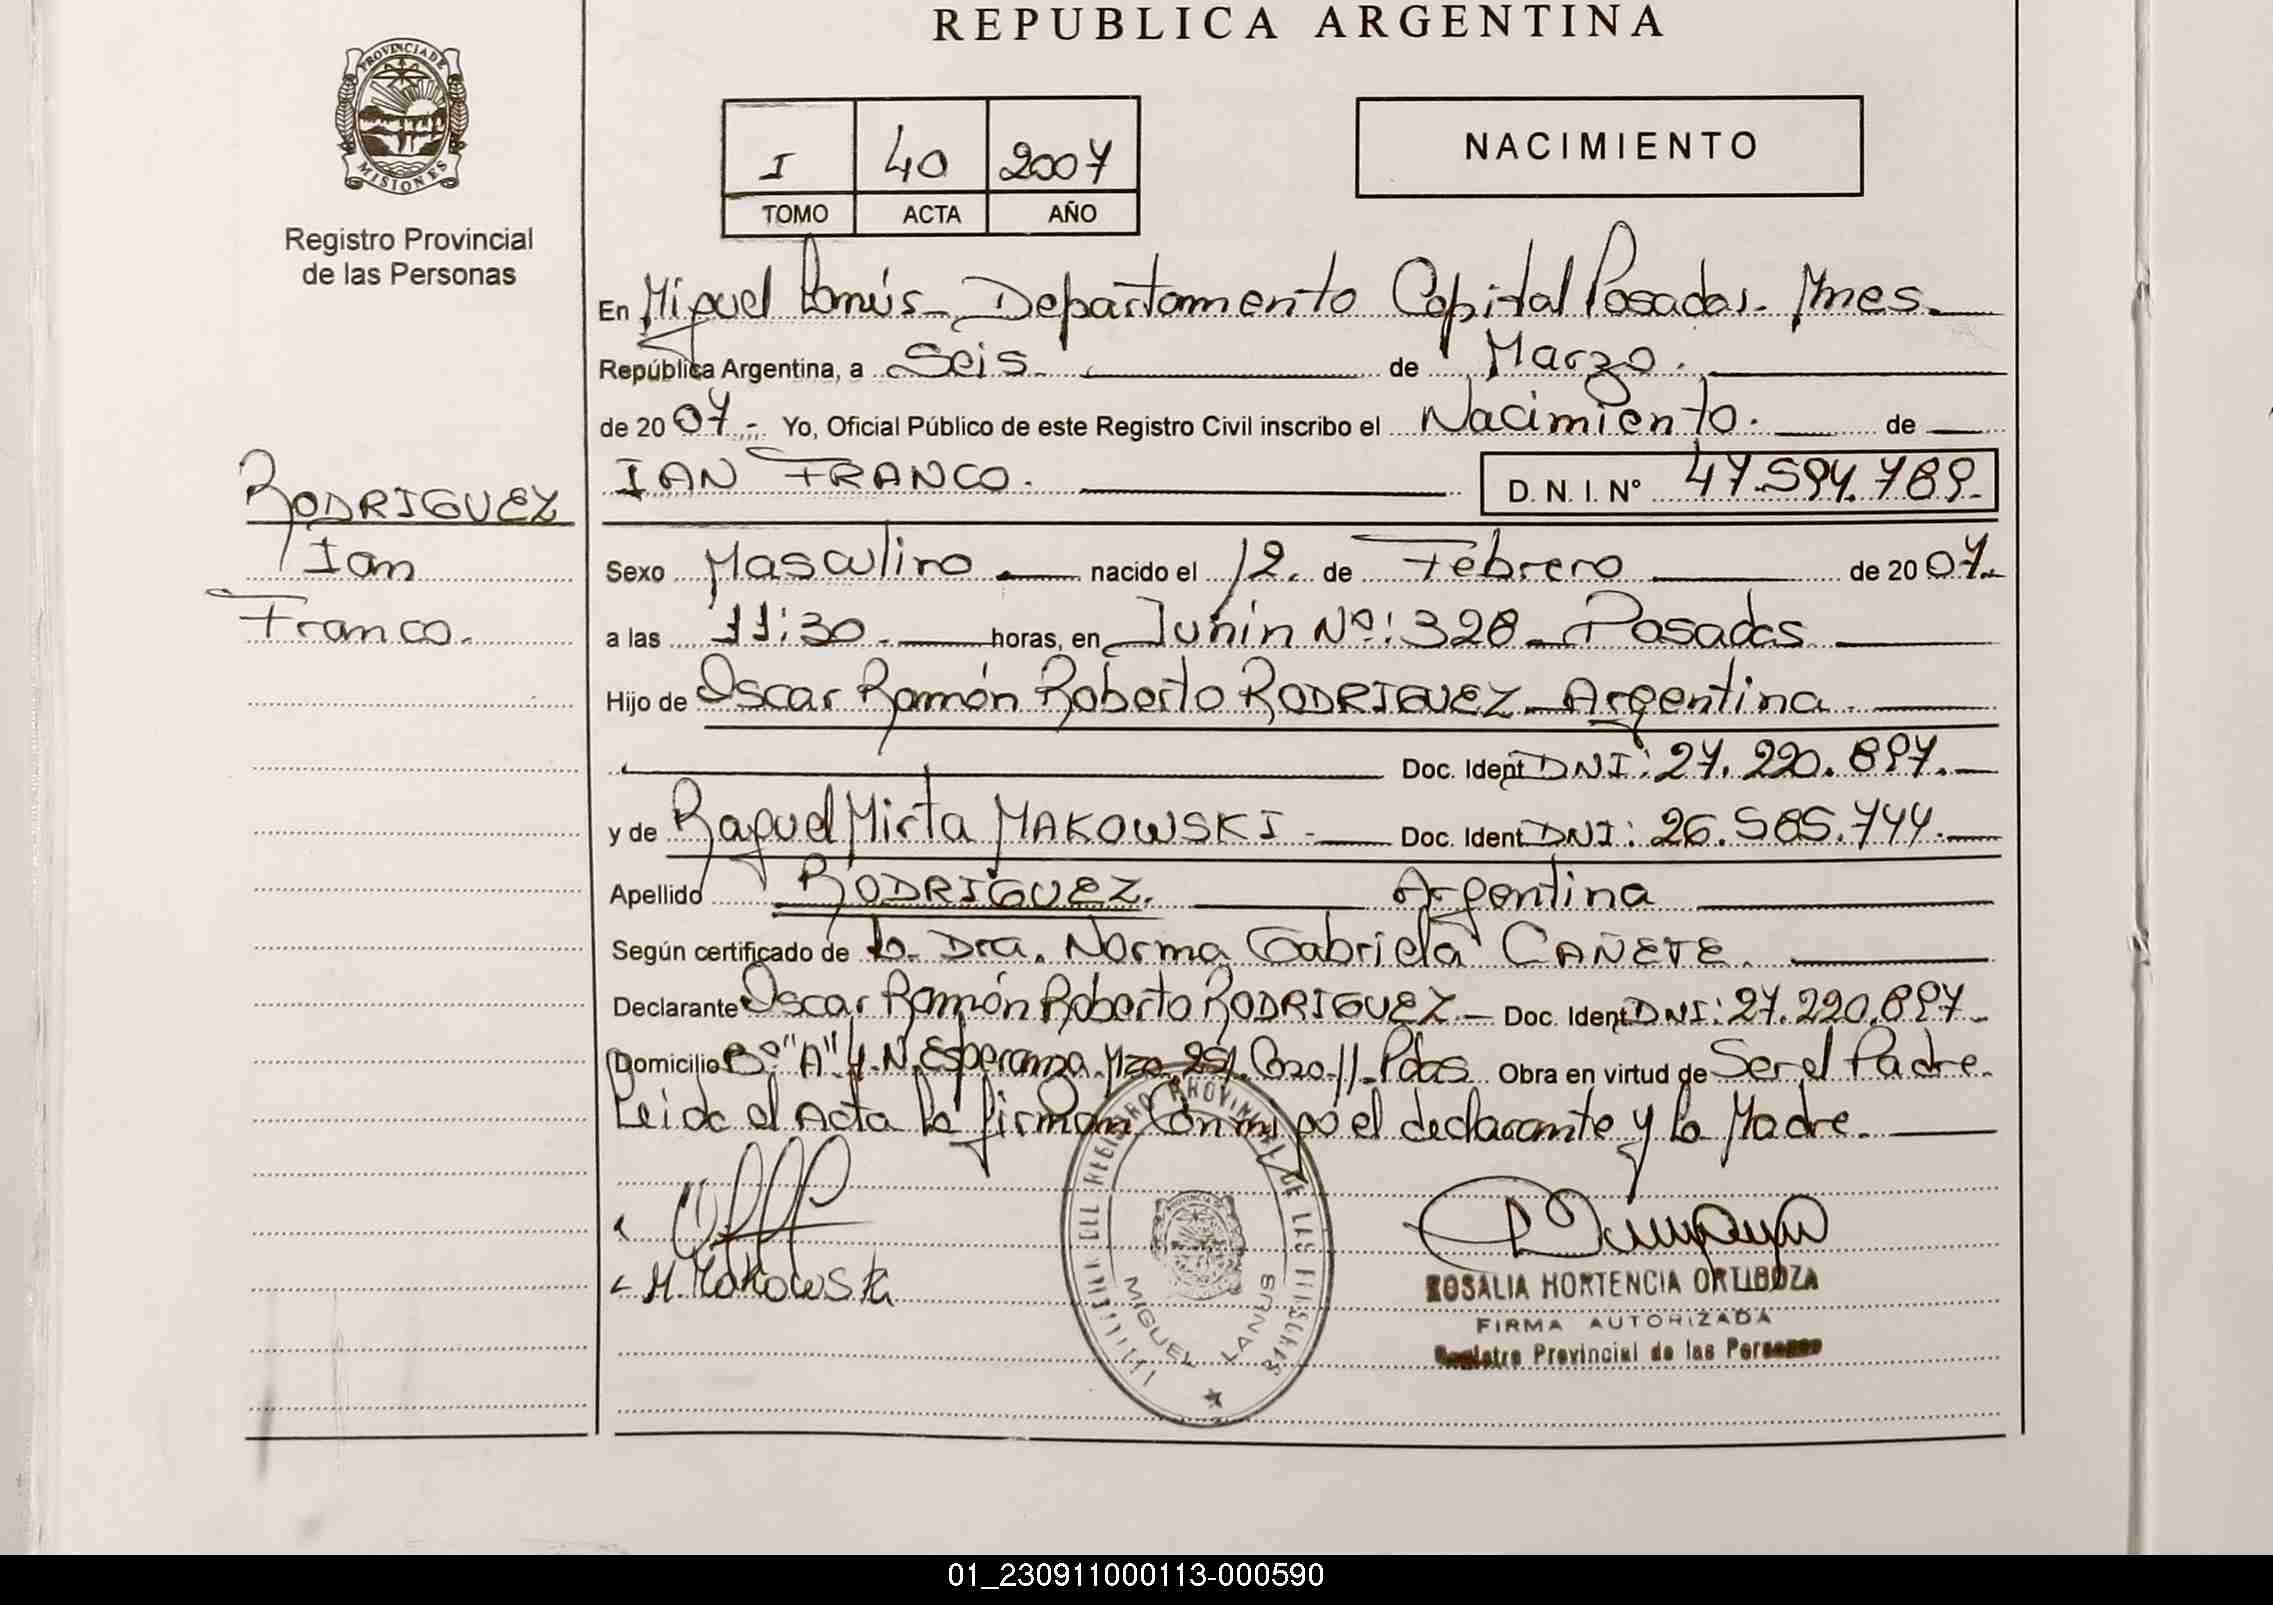 REPUBLICA ARGENTINA
PROVINCIA DE
MISIONES
Registro Provincial
de las Personas
I 40 2007
TOMO ACTA AÑO
NACIMIENTO
En Miguel Lanús - Departamento Capital Posadas. Mnes.
República Argentina, a Seis. de Marzo.
de 2007 - Yo, Oficial Público de este Registro Civil inscribo el Nacimiento. de
IAN FRANCO. D. N. I. Nº 47.594.789.
RODRIGUEZ
Ian
Franco.
Sexo Masculino nacido el 12. de Febrero de 2007.
a las 11:30. horas, en Junín Nº: 328 - Posadas
Hijo de Oscar Ramón Roberto RODRIGUEZ - Argentina
Doc. Ident DNI: 27.220.897.
y de Raquel Mirta MAKOWSKI - Doc. Ident DNI: 26.585.744.
Apellido RODRIGUEZ. Argentina
Según certificado de la Dra. Norma Gabriela CAÑETE.
Declarante Oscar Ramón Roberto RODRIGUEZ - Doc. Ident DNI: 27.220.897.
Domicilio Bº "A" 4. N. Esperanza. Mza. Casa. 11. Pdas Obra en virtud de Ser el Padre.
Leida el Acta la firman Conmigo el declarante y la Madre.
M. Makowski
REGISTRO PROVINCIAL DE LAS PERSONAS
MIGUEL LANUS
ROSALIA HORTENCIA ORTIBOZA
FIRMA AUTORIZADA
Registro Provincial de las Personas
01_230911000113-000590